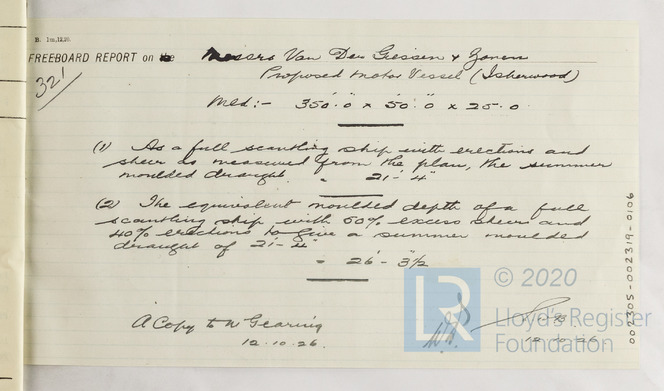 B. 1m,12,20.
FREEBOARD REPORT on the Messrs Van Der Giessen & Zonen
321
Proposed Motor Vessel (Isherwood)
Mld:- 350'.0" x 50'.0" x 25.0
(1) As a full scantling ship with erections and
sheer as measured from the plan, the summer
moulded draught = 21'-4"
(2) The equivalent moulded depth of a full
scantling ship with 50% excess sheer and
40% erections to give a summer moulded
draught of 21'-4"
= 26'-3½
A Copy to N Gearing
12.10.26.
12.10.26
© 2020
LR
Lloyd's Register
Foundation
002305-002319-0106